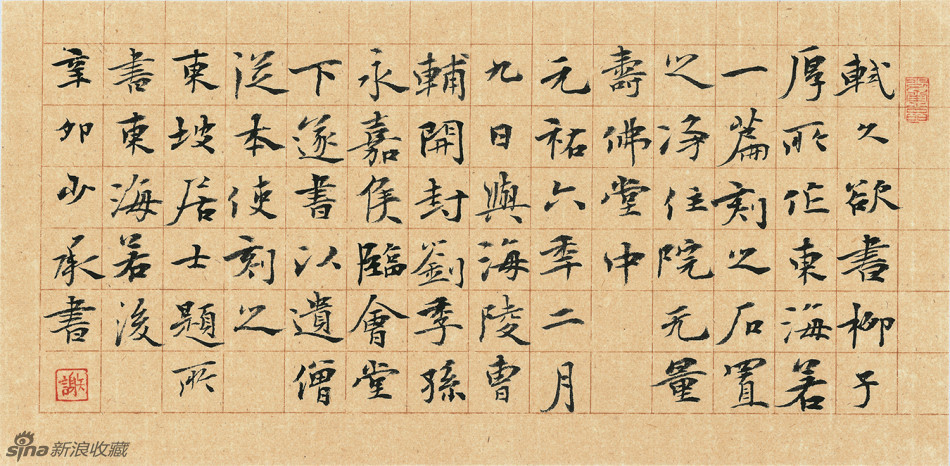 軾久欲書柳子
厚所作東海若
一篇刻之石置
之净住院无量
壽佛堂中
元祐六年二月
九日與海陵曹
輔開封劉季孫
永嘉侯臨會堂
下遂書以遺僧
從本使刻之
東坡居士題所
書東海若後
辛卯少承書
謝
sina新浪收藏